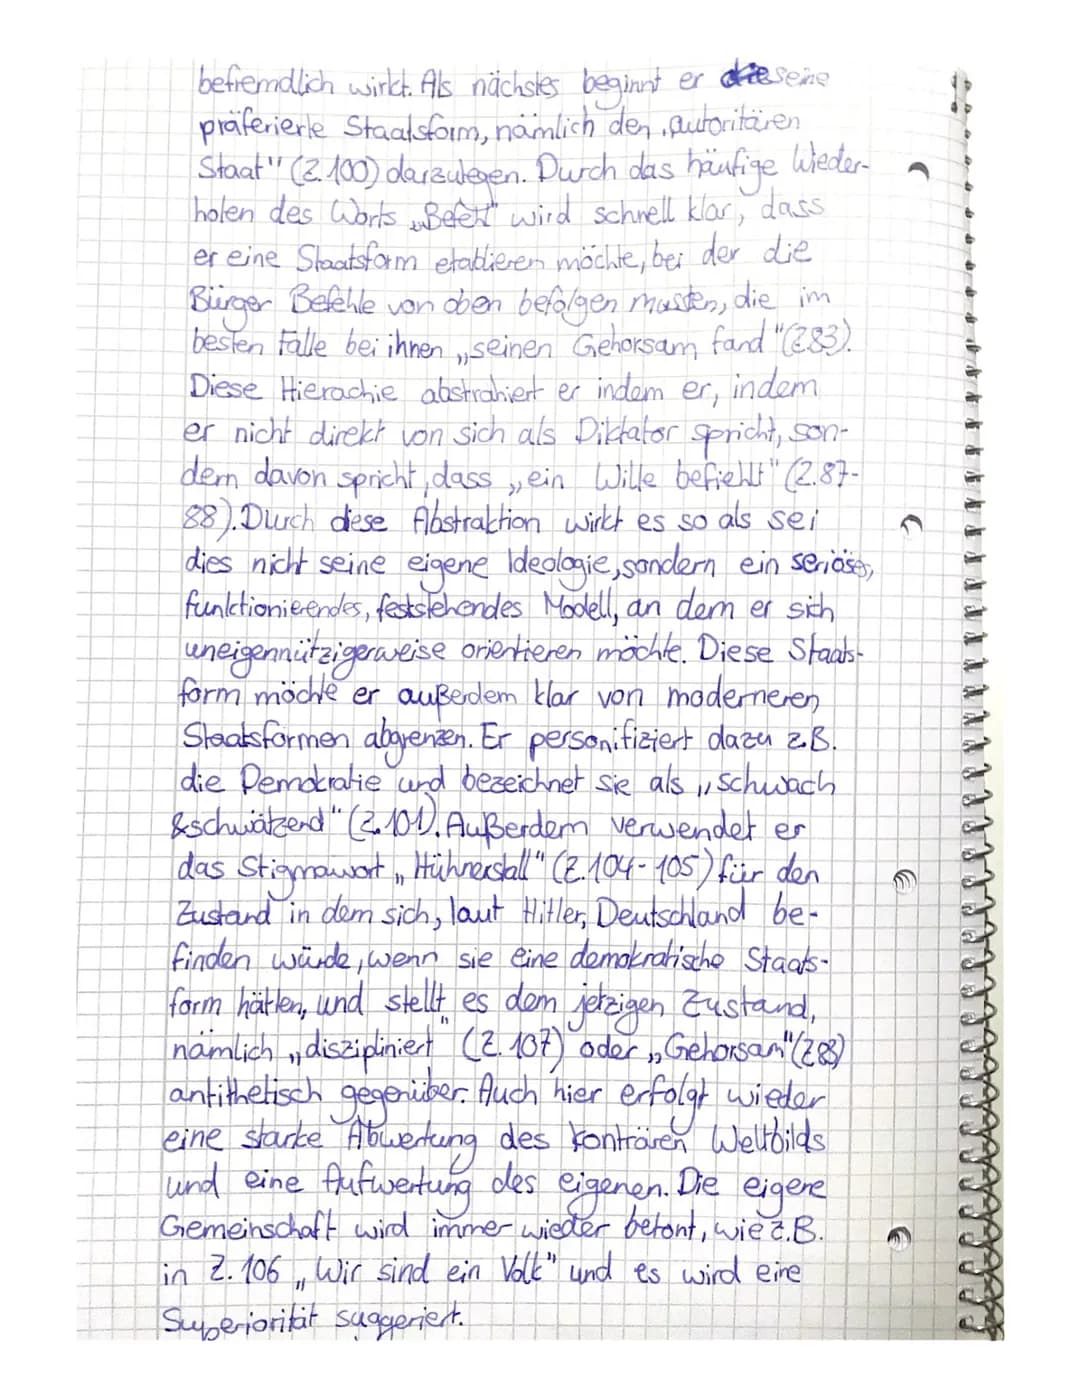 befremdlich wirkt. Als nächstes beginnt er seine
präferierte Staatsform, nämlich den „autoritären
Staat" (Z.100) darzulegen. Durch das häufige Wieder-
holen des Worts „Befehl" wird schnell klar, dass
er eine Staatsform etablieren möchte, bei der die
Bürger Befehle von oben befolgen müssten, die im
besten Falle bei ihnen „seinen Gehorsam fand "(Z.83).
Diese Hierachie abstrahiert er indem er, indem
er nicht direkt von sich als Diktator spricht, son-
dern davon spricht, dass „ein Wille befiehlt" (Z.87-
88). Durch diese Abstraktion wirkt es so als sei
dies nicht seine eigene Ideologie, sondern ein seriöses,
funktionierendes, feststehendes Modell, an dem er sich
uneigennützigerweise orientieren möchte. Diese Staats-
form möchte er außerdem klar von moderneren
Staatsformen abgrenzen. Er personifiziert dazu z.B.
die Demokratie und bezeichnet sie als „schwach
&schwätzend" (Z.101). Außerdem verwendet er
das Stigmawort „Hühnerstall" (Z.104-105) für den
Zustand in dem sich, laut Hitler, Deutschland be-
finden würde, wenn sie eine demokratische Staats-
form hätten, und stellt es dem jetzigen Zustand,
nämlich „diszipliniert" (Z.107) oder „Gehorsam"(Z.83)
antithetisch gegenüber. Auch hier erfolgt wieder
eine starke Abwertung des konträren Weltbilds
und eine Aufwertung des eigenen. Die eigene
Gemeinschaft wird immer wieder betont, wie z.B.
in Z.106 „Wir sind ein Volk" und es wird eine
Superiorität suggeriert.